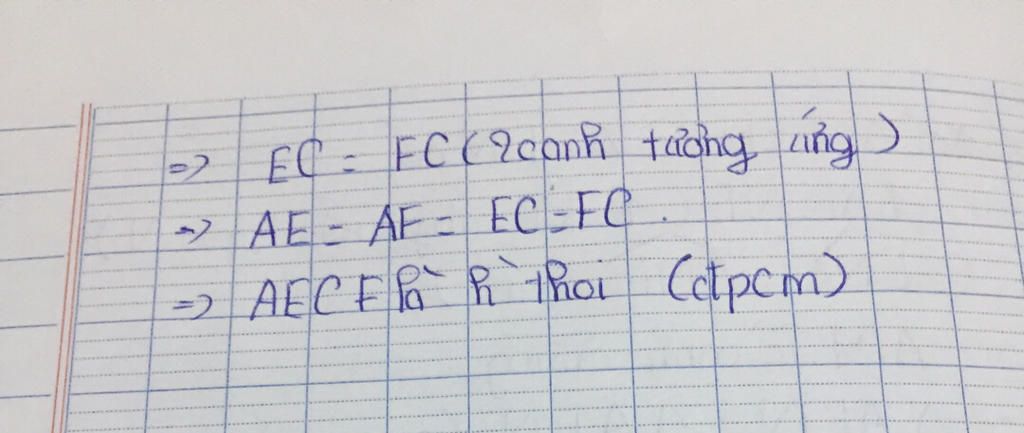 => EC = FC (2 cạnh tương ứng)
=> AE = AF = EC = FC.
=> AECF là h` thoi (đpcm)